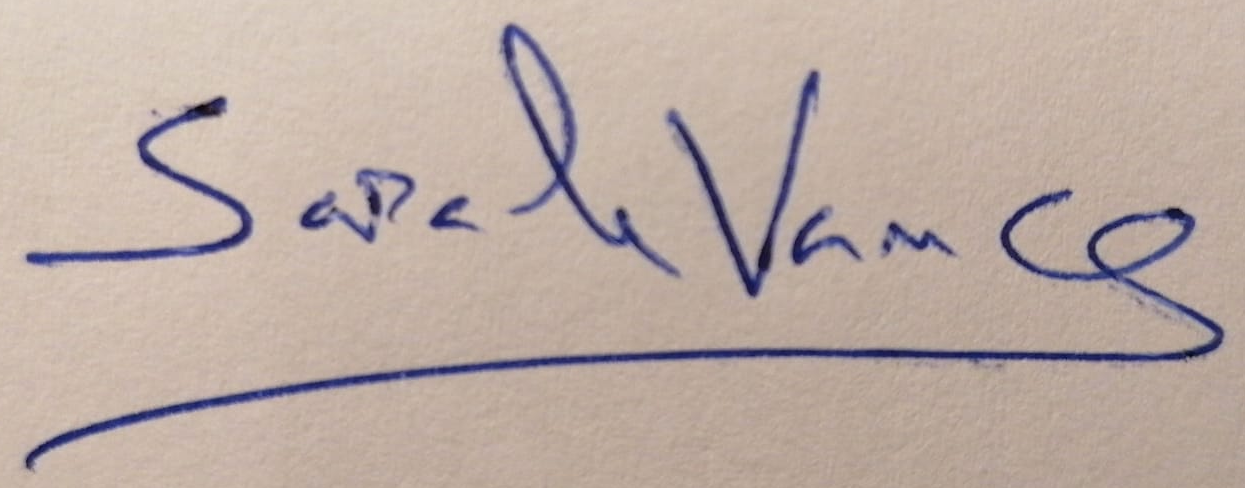 Sarah Vance